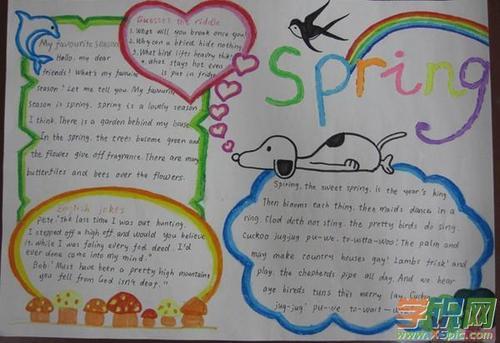 My favourite season
Hello, my dear
friends! What's my favourite
season? Let me tell you. My favourite
season is spring. Spring is a lovely season.
I think. There is a garden behind my house
In the spring. the trees become green and
the flower give off fragrance. There are many
butterflies and bees over the flowers.
Guesses the riddle
1. What will you break once you
2. Why can a blind hide nothing
3. What bird lifts heavy things
4. what stays hot even
is put in fridge
Spring
English jokes
Pete: "The last time I was out hunting,
I stepped off a high off and would you believe
it, while I was faling every fod deed. I'd
ever done came into my mind."
Bob: "Must have been a pretty high mountains
you fell from God isn't dear."
Spiring, the sweet spring, is the year's king
Then blooms each thing, then maids dance in a
ring. Clod doth not sting. the pretty birds do sing.
Cuckoo jug-jug pu-we, to-witta-woo! The palm and
may make country houses gay! Lambs frisk and
play. the chepherds pipe all day. And we hear
aye bireds tuns this merry lay. Cuckoo
jug-jug' pu-we to-wit-
学识网
www.xspic.com